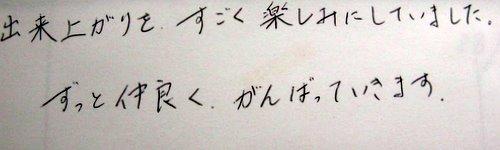 出来上がりを、すごく楽しみにしていました。
ずっと仲良く、がんばっていきます。